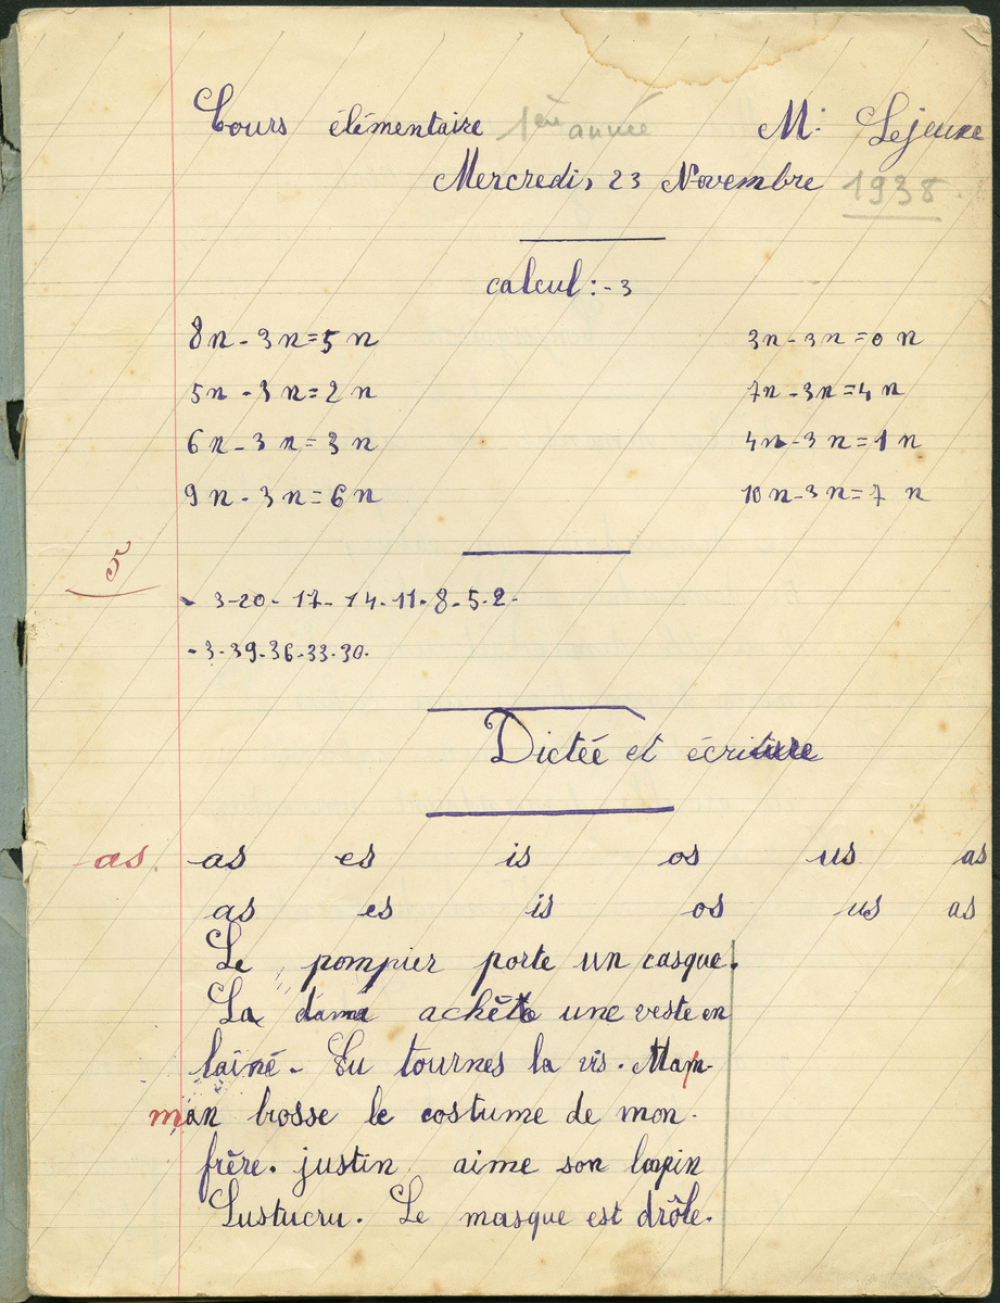 Cours élémentaire 1ère année M. Lejeune
Mercredi, 23 Novembre 1938.
calcul : - 3
8n - 3n = 5n 3n - 3n = 0n
5n - 3n = 2n 7n - 3n = 4n
6n - 3n = 3n 4n - 3n = 1n
9n - 3n = 6n 10n - 3n = 7n
5
- 3-20-17-14-11-8-5-2-
- 3-39-36-33-30.
Dictéé et écriture
as. as es is os us as
as es is os us as
Le pompier porte un casque.
La dama achète une veste en
lainé - Tu tournes la vis. Mam-
man brosse le costume de mon
frère. justin aime son lapin
Lustucru. Le masque est drôle.